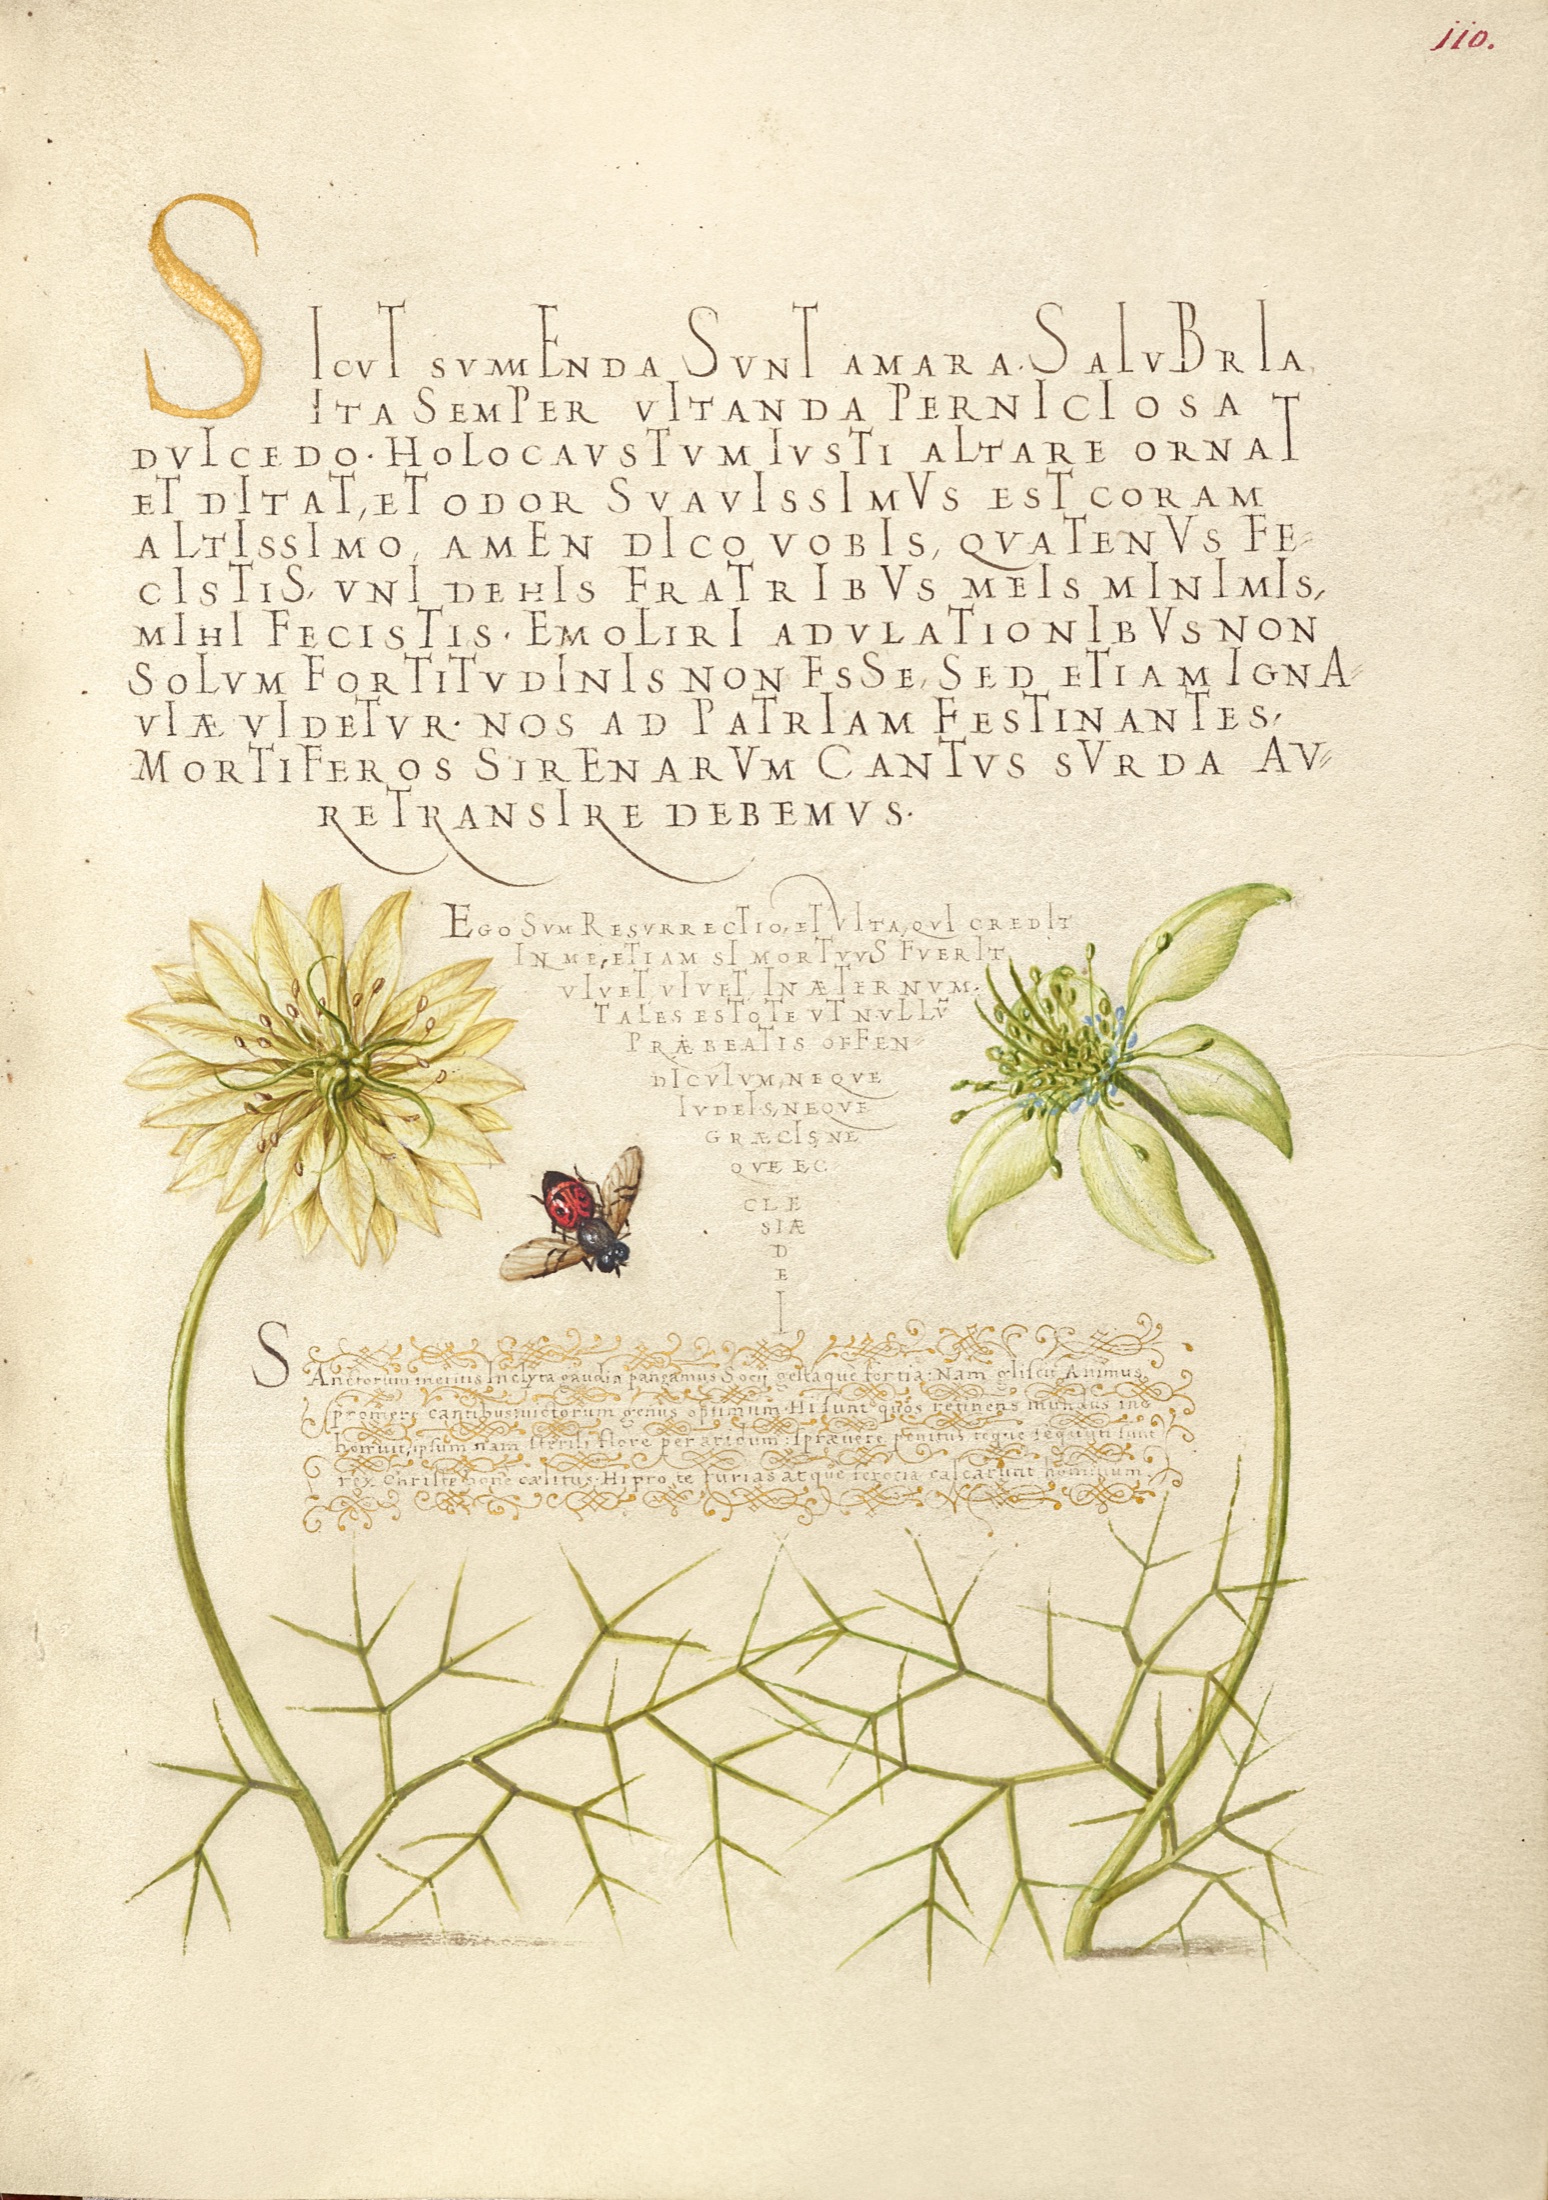 110.
SICUT SVMMENDA SVNT AMARA. SALVBRIA,
ITA SEMPER VITANDA PERNICIOSA
DVLCEDO. HOLOCAVSTVM IVSTI ALTARE ORNAT
ET DITAT, ET ODOR SVAVISSIMVS EST CORAM
ALTISSIMO, AMEN DICO VOBIS, QVATENVS FE=
CISTIS, VNI DE HIS FRATRIBVS MEIS MINIMIS,
MIHI FECISTIS. EMOLIRI ADVLATIONIBVS NON
SOLVM FORTITVDINIS NON ESSE, SED ETIAM IGNA=
VIÆ VIDETVR. NOS AD PATRIAM FESTINANTES,
MORTIFEROS SIRENARVM CANTVS SVRDA AV=
RE TRANSIRE DEBEMVS.
EGO SVM RESVRRECTIO, ET VITA, QVI CREDIT
IN ME, ETIAM SI MORTVVS FVERIT
VIVET, VIVET, IN ÆTERNVM.
TALES ESTOTE VT NVLLŪ
PRÆBEATIS OFFEN=
DICVLVM, NEQVE
IVDEIS, NEQVE
GRÆCIS, NE
QVE EC
CLE
SIÆ
D
E
I
SAnctorum meritis Inclyta gaudia pangamus Socij gestaque fortia: Nam gliscit Animus
promere cantibus victorum genus optimum. Hi sunt quos retinens mundus inh
horruit, ipsum nam sterili flore per aridum: Spræuere penitus teque secuti sunt
rex Christe bone cælitus. Hi pro te furias atque ferocia calcarunt hominum